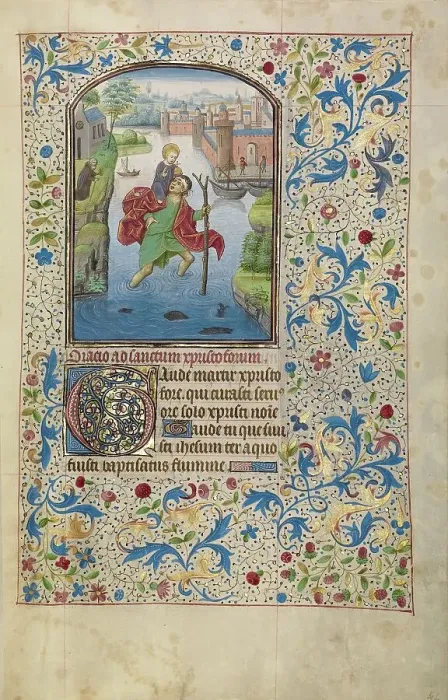 Oracio ad sanctum xpristoforum
Gaude martir xpristo
fore. qui curasti feru
ore solo xpristi noīe
Gaude tu que fuī
sti ihesum ter a quo
fuisti baptisatus flumine